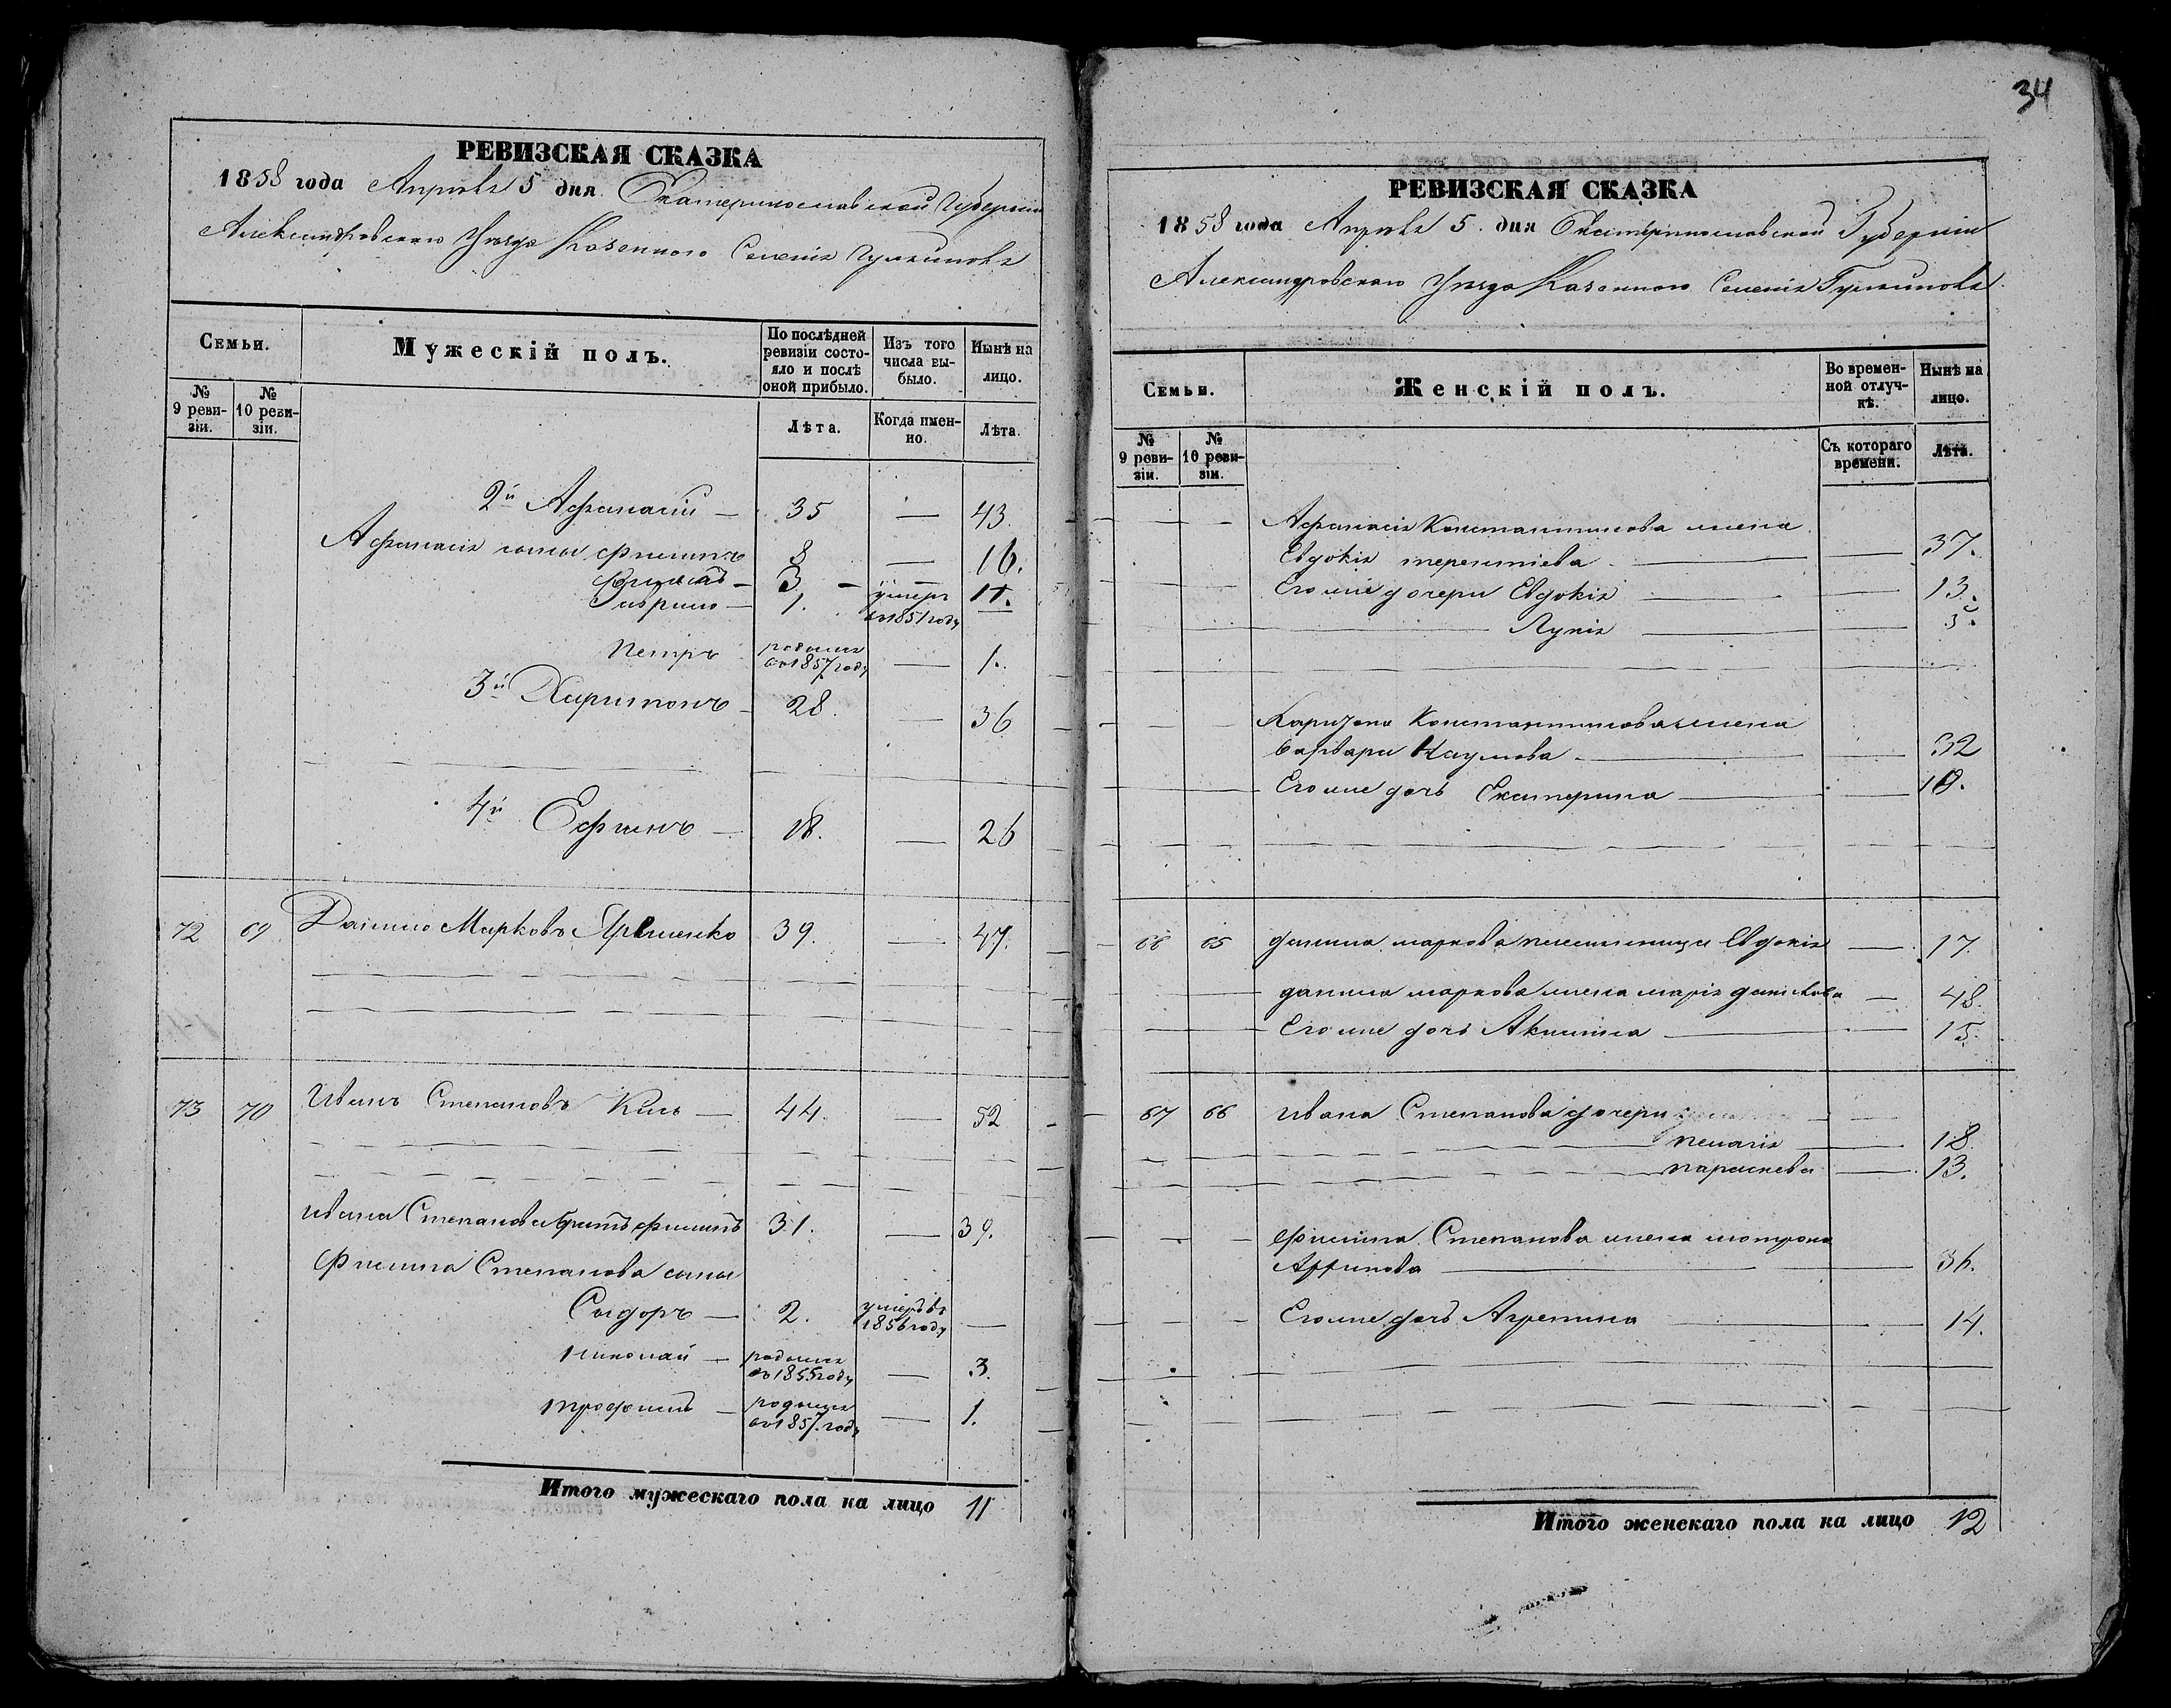 РЕВИЗСКАЯ СКАЗКА
1858 года Апрѣля 5 дня Екатеринославской Губерніи
Александровскаго Уѣзда Казеннаго Селенія Гуляйполя
Семьи.
Мужескій полъ.
По послѣдней ревизіи состояло и послѣ оной прибыло.
Изъ того числа выбыло.
Нынѣ на лицо.
№ 9 ревизіи.
№ 10 ревизіи.
Лѣта.
Когда именно.
Лѣта.
2й Афанасій — 35 — 43.
Афанасія сыны Филипъ 8 — 16.
3 — 11.
Гаврило — 1. умеръ въ 1851 году
Петръ родился въ 1857 году — 1.
3й Харитонъ — 28. — 36
4й Ефимъ — 18. — 26
72 69 Данило Марковъ 39. — 47.
73 70 Иванъ Степановъ Киль — 44. — 52
Ивана Степанова братъ Филипъ 31. — 39.
Филипа Степанова сыны
Сидоръ — 2. умеръ въ 1856 году —
Николай — родился въ 1855 году — 3.
Трофимъ — родился въ 1857 году — 1.
Итого мужескаго пола на лицо 11
34
РЕВИЗСКАЯ СКАЗКА
1858 года Апрѣля 5. дня Екатеринославской Губерніи
Александровскаго Уѣзда Казеннаго Селенія Гуляйполя.
Семьи.
Женскій полъ.
Во временной отлучкѣ.
Нынѣ на лицо.
№ 9 ревизіи.
№ 10 ревизіи.
Съ котораго времени.
Лѣта.
Афанасія Константинова жена
Евдокія Терентіева — — 37.
Его же дочери Евдокія — — 13.
Лукія — — 5.
Харитона Константинова жена
Варвара Наумова — — 32
Его же дочь Екатерина — — 10.
66 65 Данила Маркова племянница Евдокія — 17.
Данила Маркова жена Марія Данилова — 48.
Его же дочь Акилина — — 15.
67 66 Ивана Степанова дочери
Пелагія — — 18.
Параскева — — 13.
Филипа Степанова жена Мотрона
— — 36.
Его же дочь Агрепина — — 14.
Итого женскаго пола на лицо 12